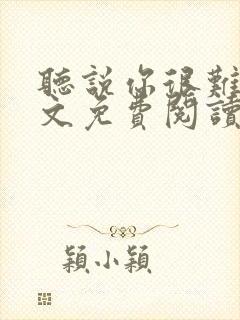 聽說你很難
文免費閱讀
穎小穎